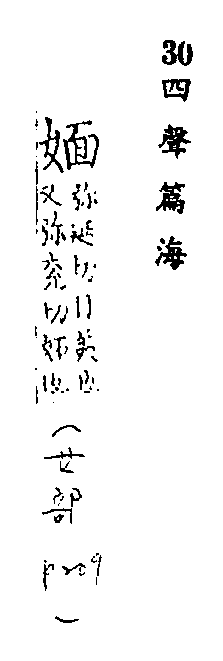 30四聲篇海
媔
弥延切目美也
又弥兖切妬也
(女部 p209)